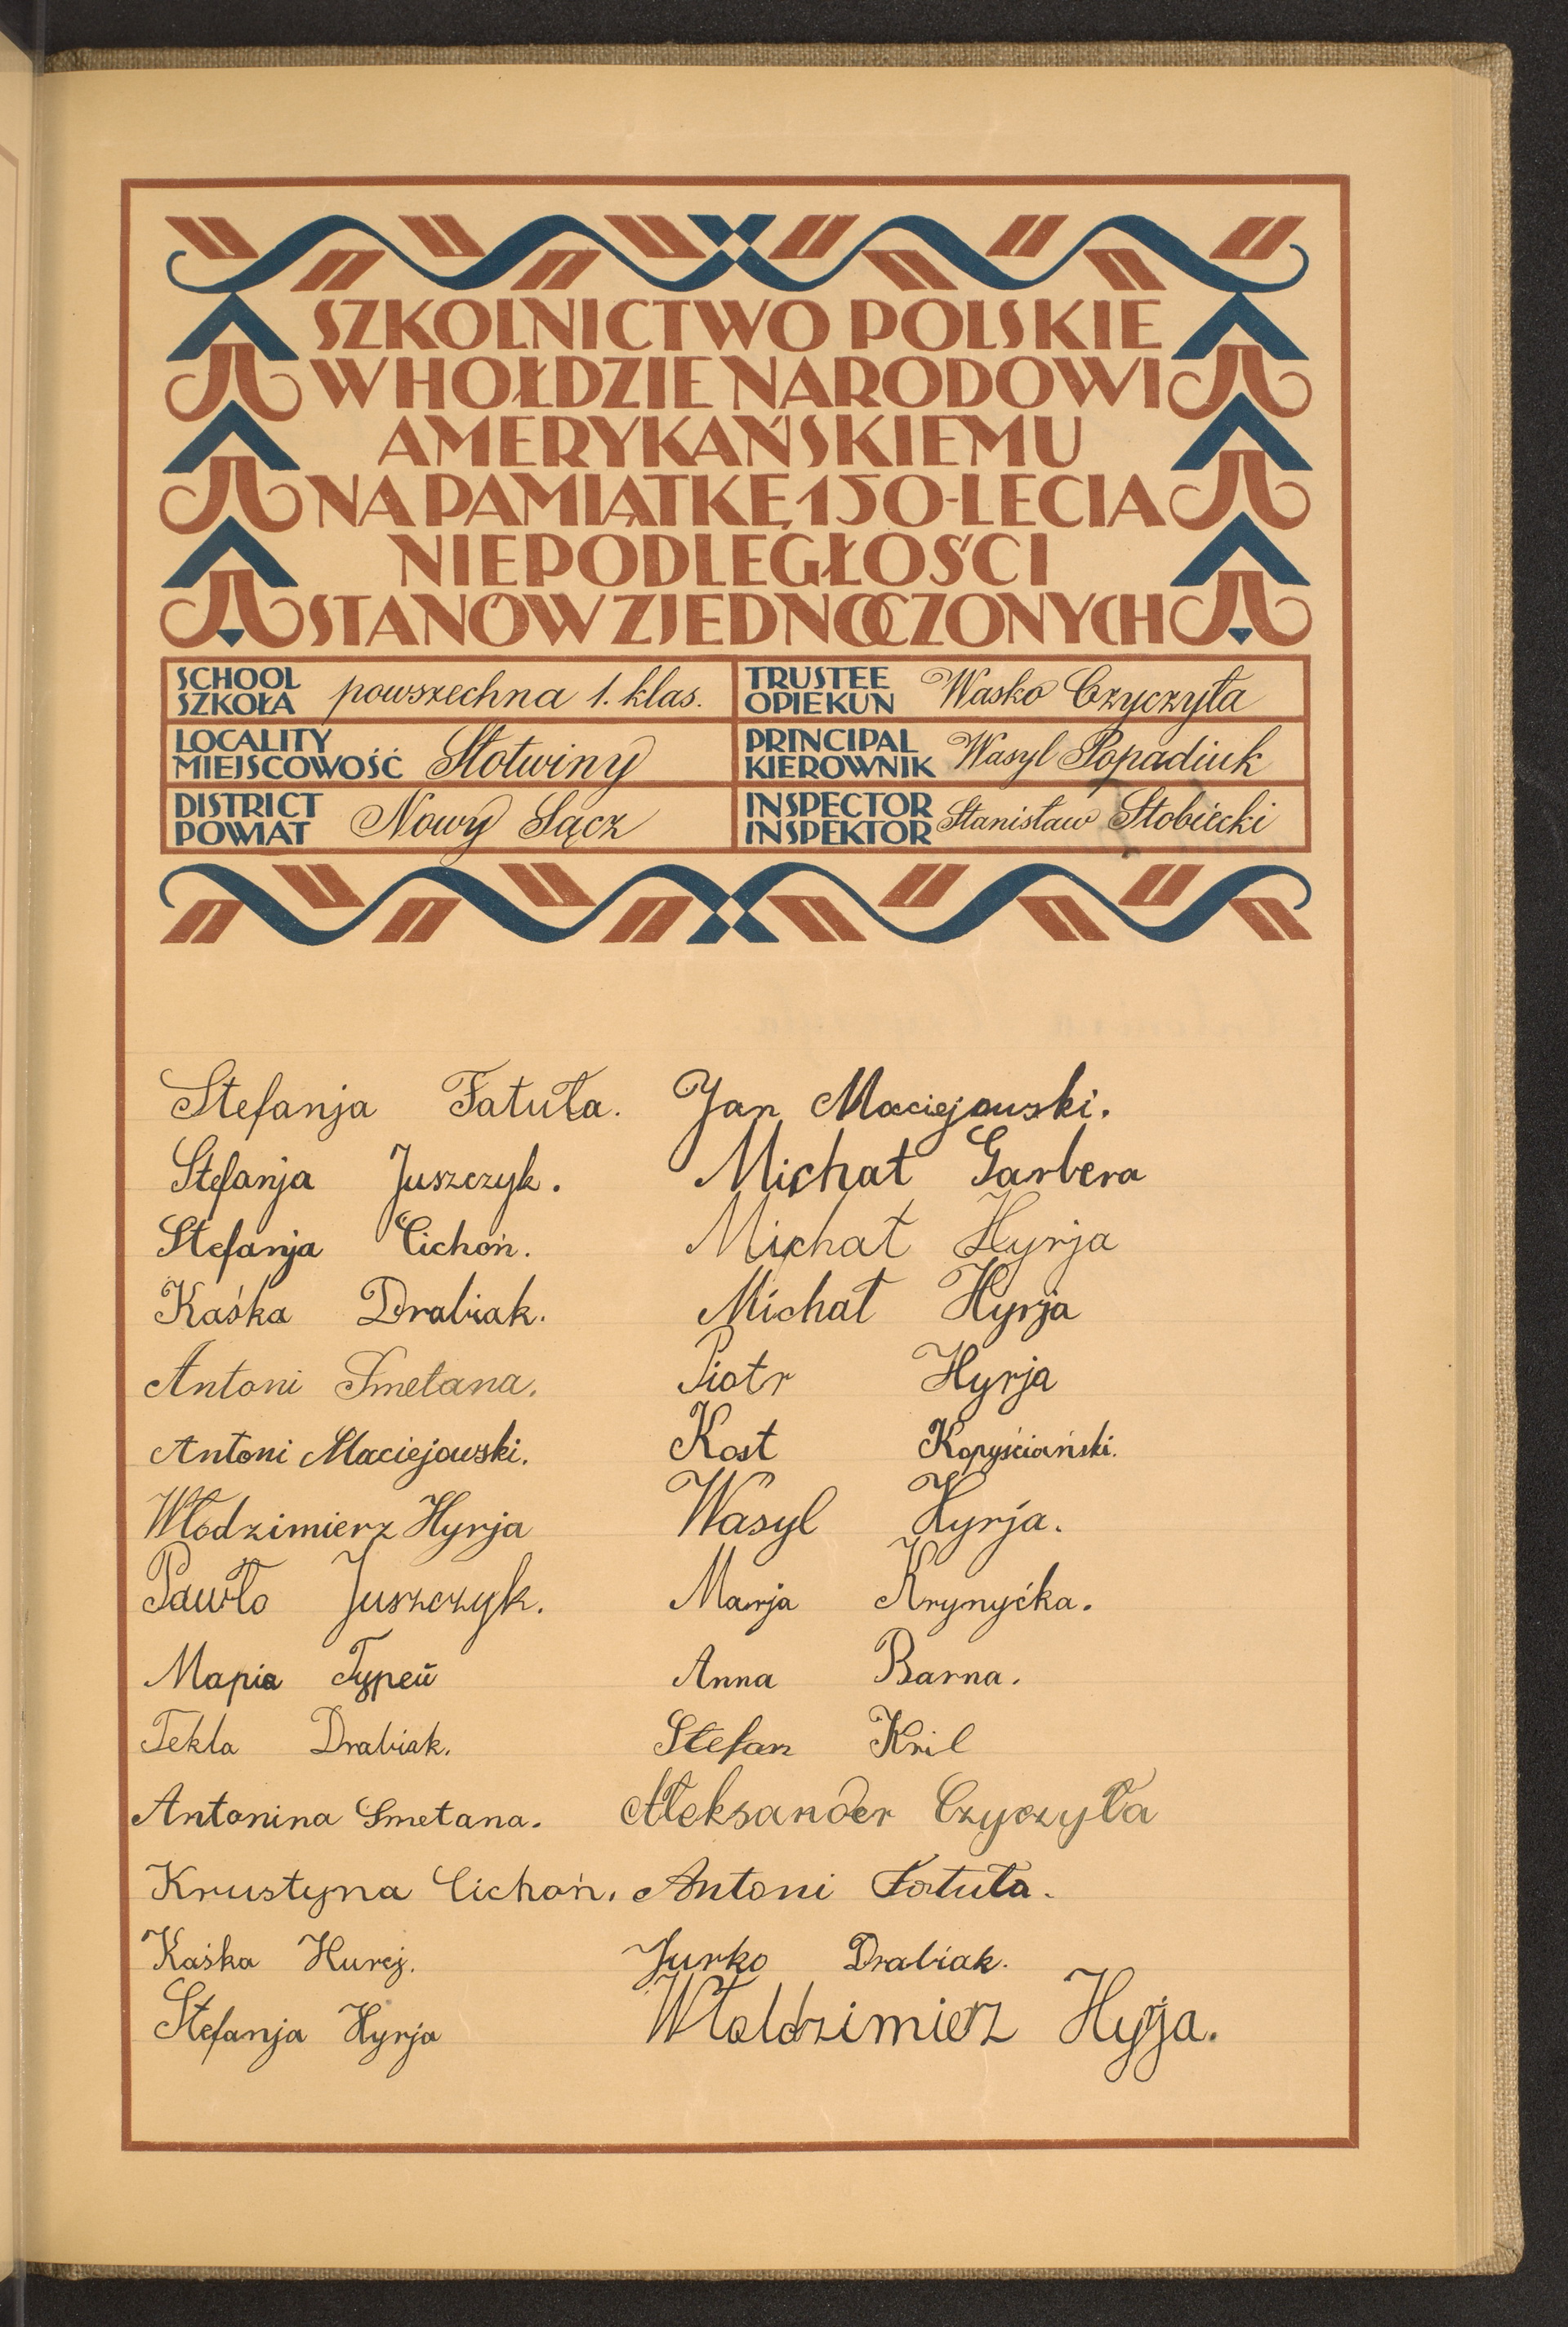 SZKOLNICTWO POLSKIE
W HOŁDZIE NARODOWI
AMERYKAŃSKIEMU
NA PAMIĄTKĘ 150-LECIA
NIEPODLEGŁOŚCI
STANÓW ZJEDNOCZONYCH
SCHOOL
SZKOŁA powszechna 1. klas.
TRUSTEE
OPIEKUN Wasko Czyczyła
LOCALITY
MIEJSCOWOŚĆ Słotwiny
PRINCIPAL
KIEROWNIK Wasyl Popadiuk
DISTRICT
POWIAT Nowy Sącz
INSPECTOR
INSPEKTOR Stanisław Stobiecki
Stefanja Fatuła.
Stefanja Juszczyk.
Stefanja Cichoń.
Kaśka Drabiak.
Antoni Smetana.
Antoni Maciejowski.
Włodzimierz Hyrja
Pawło Juszczyk.
Марія Гурей
Tekla Drabiak.
Antonina Smetana.
Krustyna Cichoń.
Kaśka Hurej.
Stefanja Hyrja
Jan Maciejowski.
Michał Garbera
Michał Hyrja
Michał Hyrja
Piotr Hyrja
Kost Kopyściański.
Wasyl Hyrja.
Marja Krynyćka.
Anna Barna.
Stefan Kril
Aleksander Czyczyła
Antoni Fatuła.
Jurko Drabiak.
Włoldzimierz Hyrja.